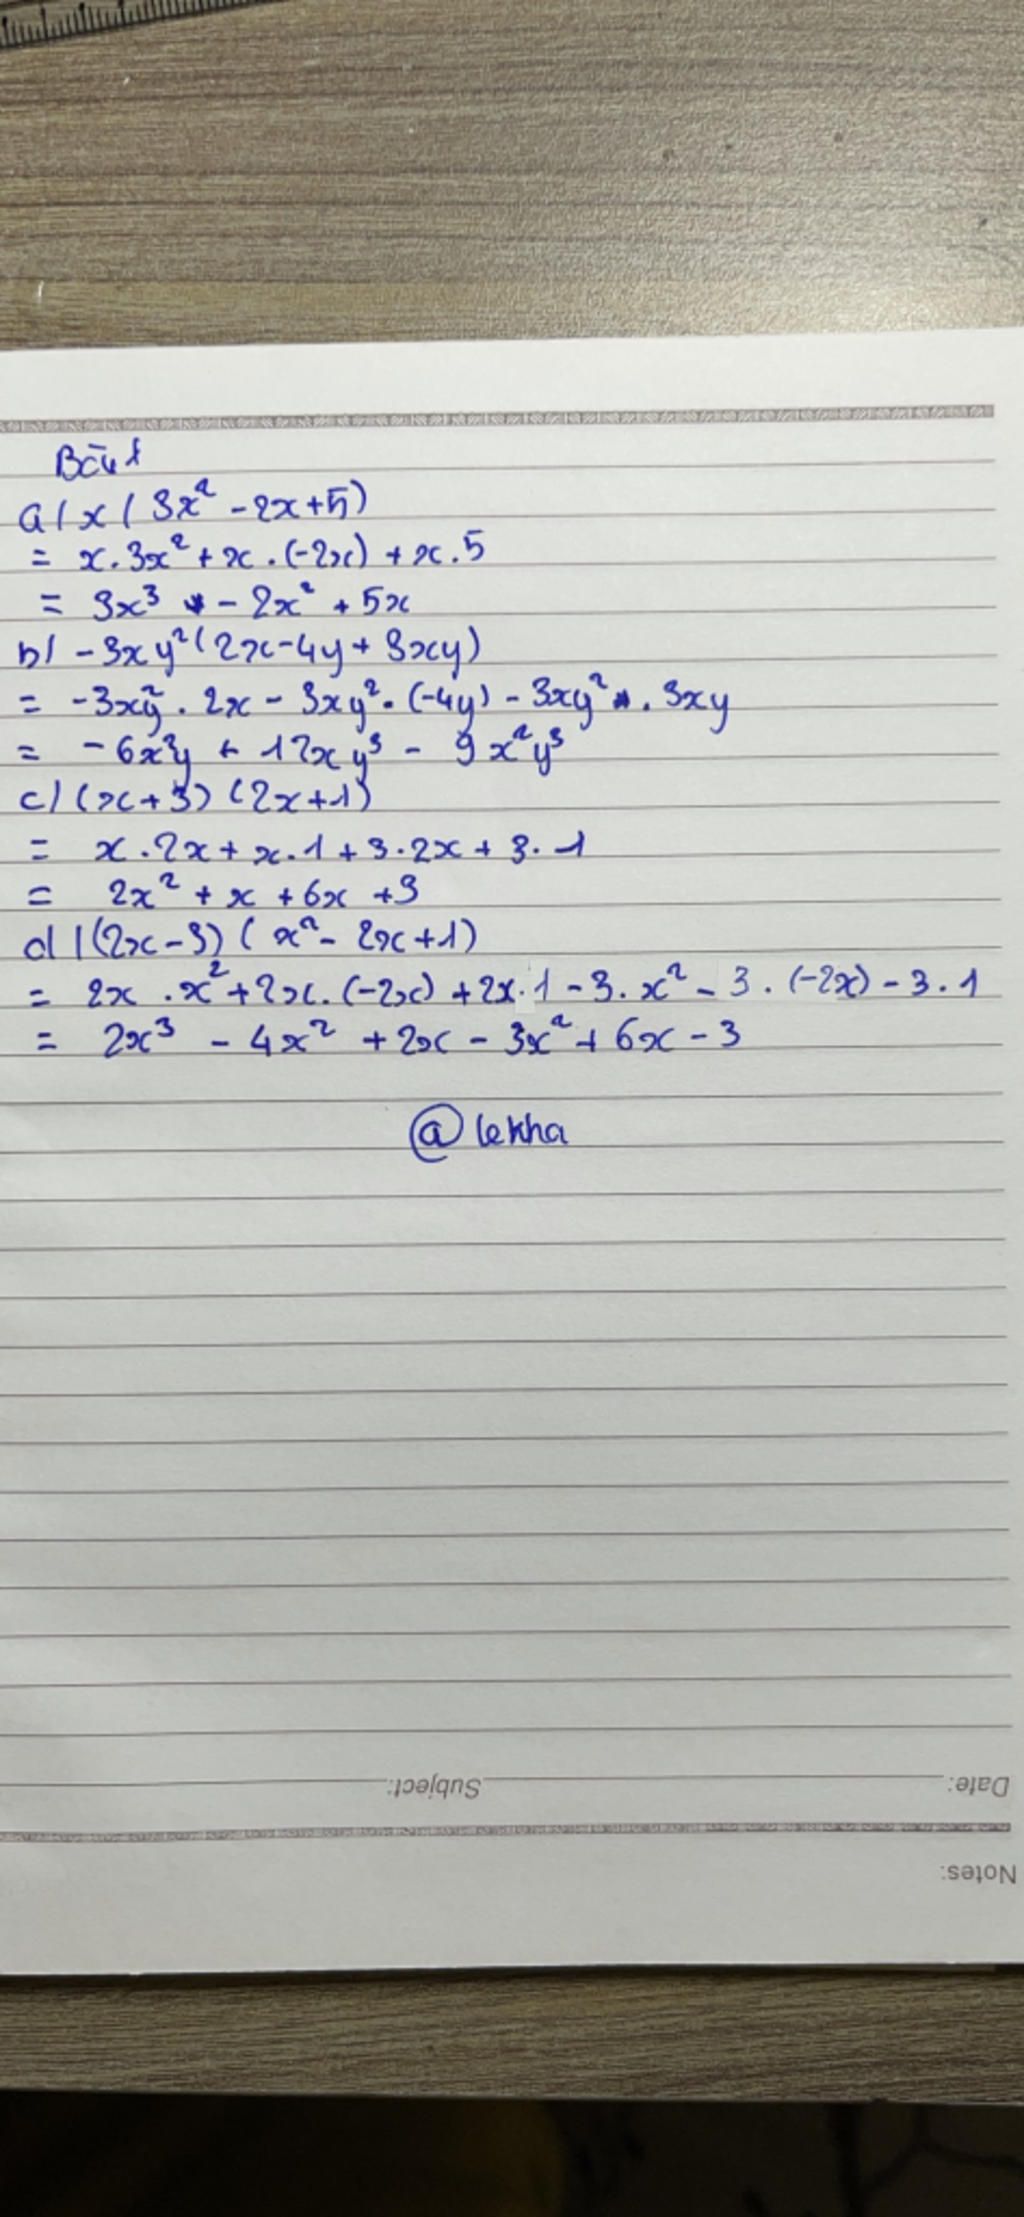 Bài 1
a/ x(3x² - 2x + 5)
= x . 3x² + x . (-2x) + x . 5
= 3x³ - 2x² + 5x
b/ -3xy²(2x - 4y + 3xy)
= -3xy² . 2x - 3xy² . (-4y) - 3xy² . 3xy
= -6x²y + 12xy³ - 9x²y³
c/ (x + 3) (2x + 1)
= x . 2x + x . 1 + 3 . 2x + 3 . 1
= 2x² + x + 6x + 3
d/ (2x - 3) (x² - 2x + 1)
= 2x . x² + 2x . (-2x) + 2x . 1 - 3 . x² - 3 . (-2x) - 3 . 1
= 2x³ - 4x² + 2x - 3x² + 6x - 3
@lekha
Subject: Date:
Notes: